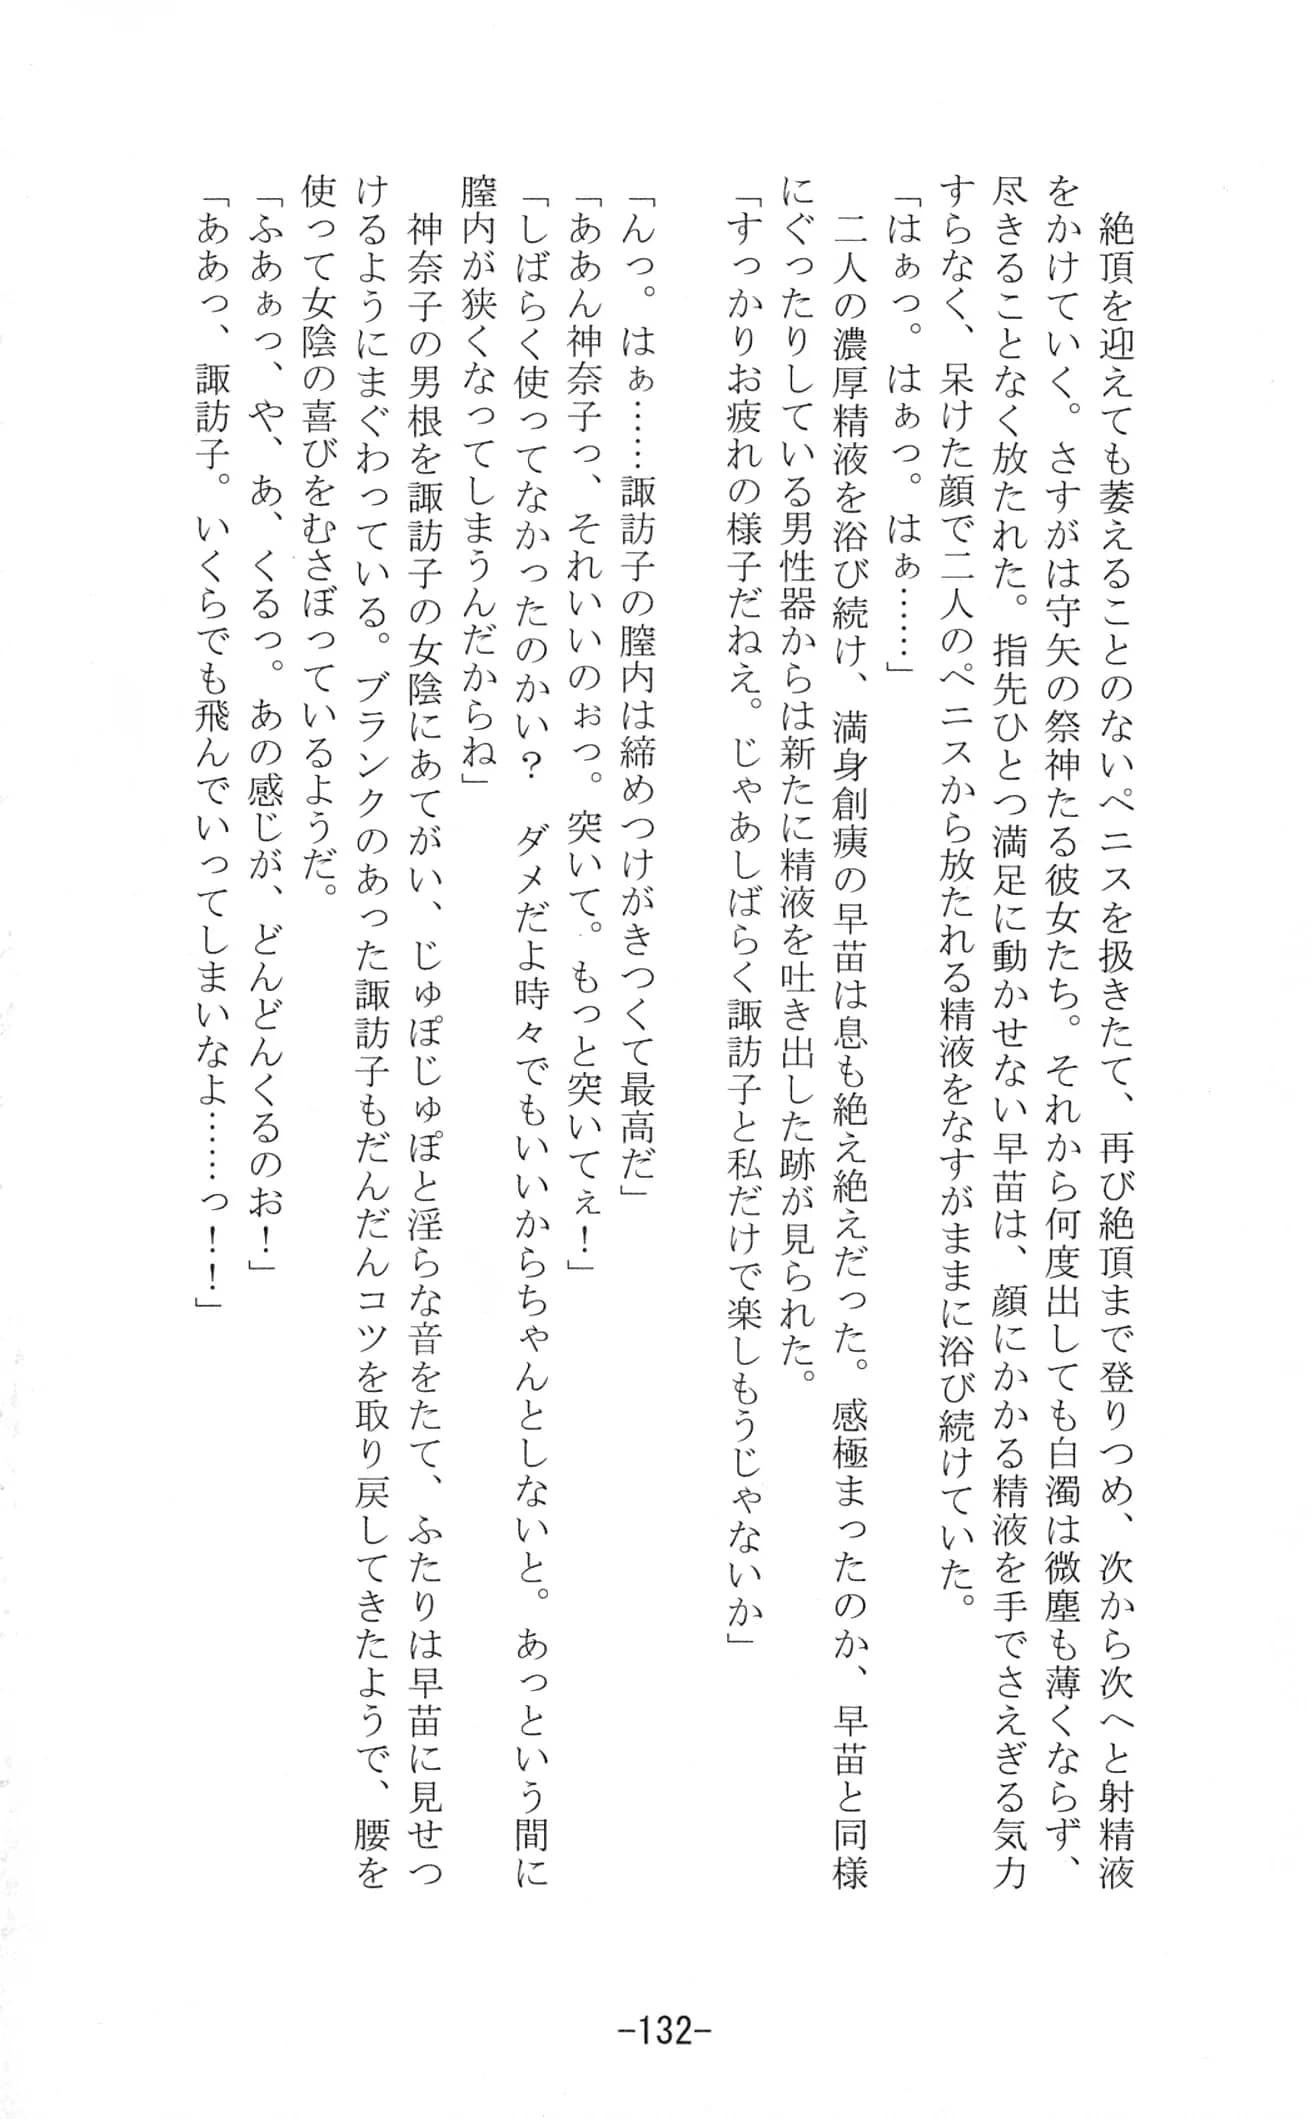 絶頂を迎えても萎えることのないペニスを扱きたて、再び絶頂まで登りつめ、次から次へと射精液
をかけていく。さすがは守矢の祭神たる彼女たち。それから何度出しても白濁は微塵も薄くならず、
尽きることなく放たれた。指先ひとつ満足に動かせない早苗は、顔にかかる精液を手でさえぎる気力
すらなく、呆けた顔で二人のペニスから放たれる精液をなすがままに浴び続けていた。
「はぁっ。はぁっ。はぁ……」
　二人の濃厚精液を浴び続け、満身創痍の早苗は息も絶え絶えだった。感極まったのか、早苗と同様
にぐったりしている男性器からは新たに精液を吐き出した跡が見られた。
「すっかりお疲れの様子だねえ。じゃあしばらく諏訪子と私だけで楽しもうじゃないか」
「んっ。はぁ……諏訪子の膣内は締めつけがきつくて最高だ」
「ああん神奈子っ、それいいのぉっ。突いて。もっと突いてぇ！」
「しばらく使ってなかったのかい？　ダメだよ時々でもいいからちゃんとしないと。あっという間に
膣内が狭くなってしまうんだからね」
　神奈子の男根を諏訪子の女陰にあてがい、じゅぽじゅぽと淫らな音をたて、ふたりは早苗に見せつ
けるようにまぐわっている。ブランクのあった諏訪子もだんだんコツを取り戻してきたようで、腰を
使って女陰の喜びをむさぼっているようだ。
「ふあぁっ、や、あ、くるっ。あの感じが、どんどんくるのお！」
「ああっ、諏訪子。いくらでも飛んでいってしまいなよ……っ！！」
-132-